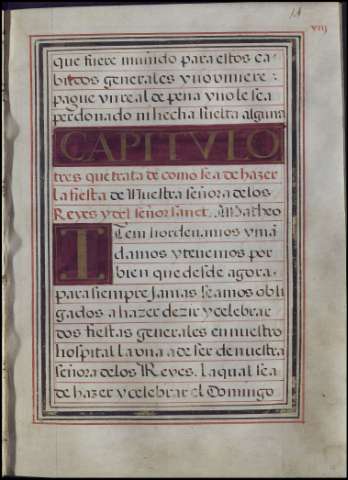 14
viij
que fuere muñido para estos ca-
bildos generales y no viniere
pague vn real de pena y no le sea
perdonado ni hecha suelta alguna
CAPITVLO
tres que trata de como se a de hazer
la fiesta de Nuestra señora de los
Reyes y del señor sanct. Matheo
Item hordenamos y mã
damos y tenemos por
bien que desde agora
para siempre Jamas seamos obli
gados a hazer dezir y celebrar
dos fiestas generales en nuestro
hospital La vna a de ser de nuestra
señora de los Reyes. La qual se a
de hazer y celebrar el Domingo